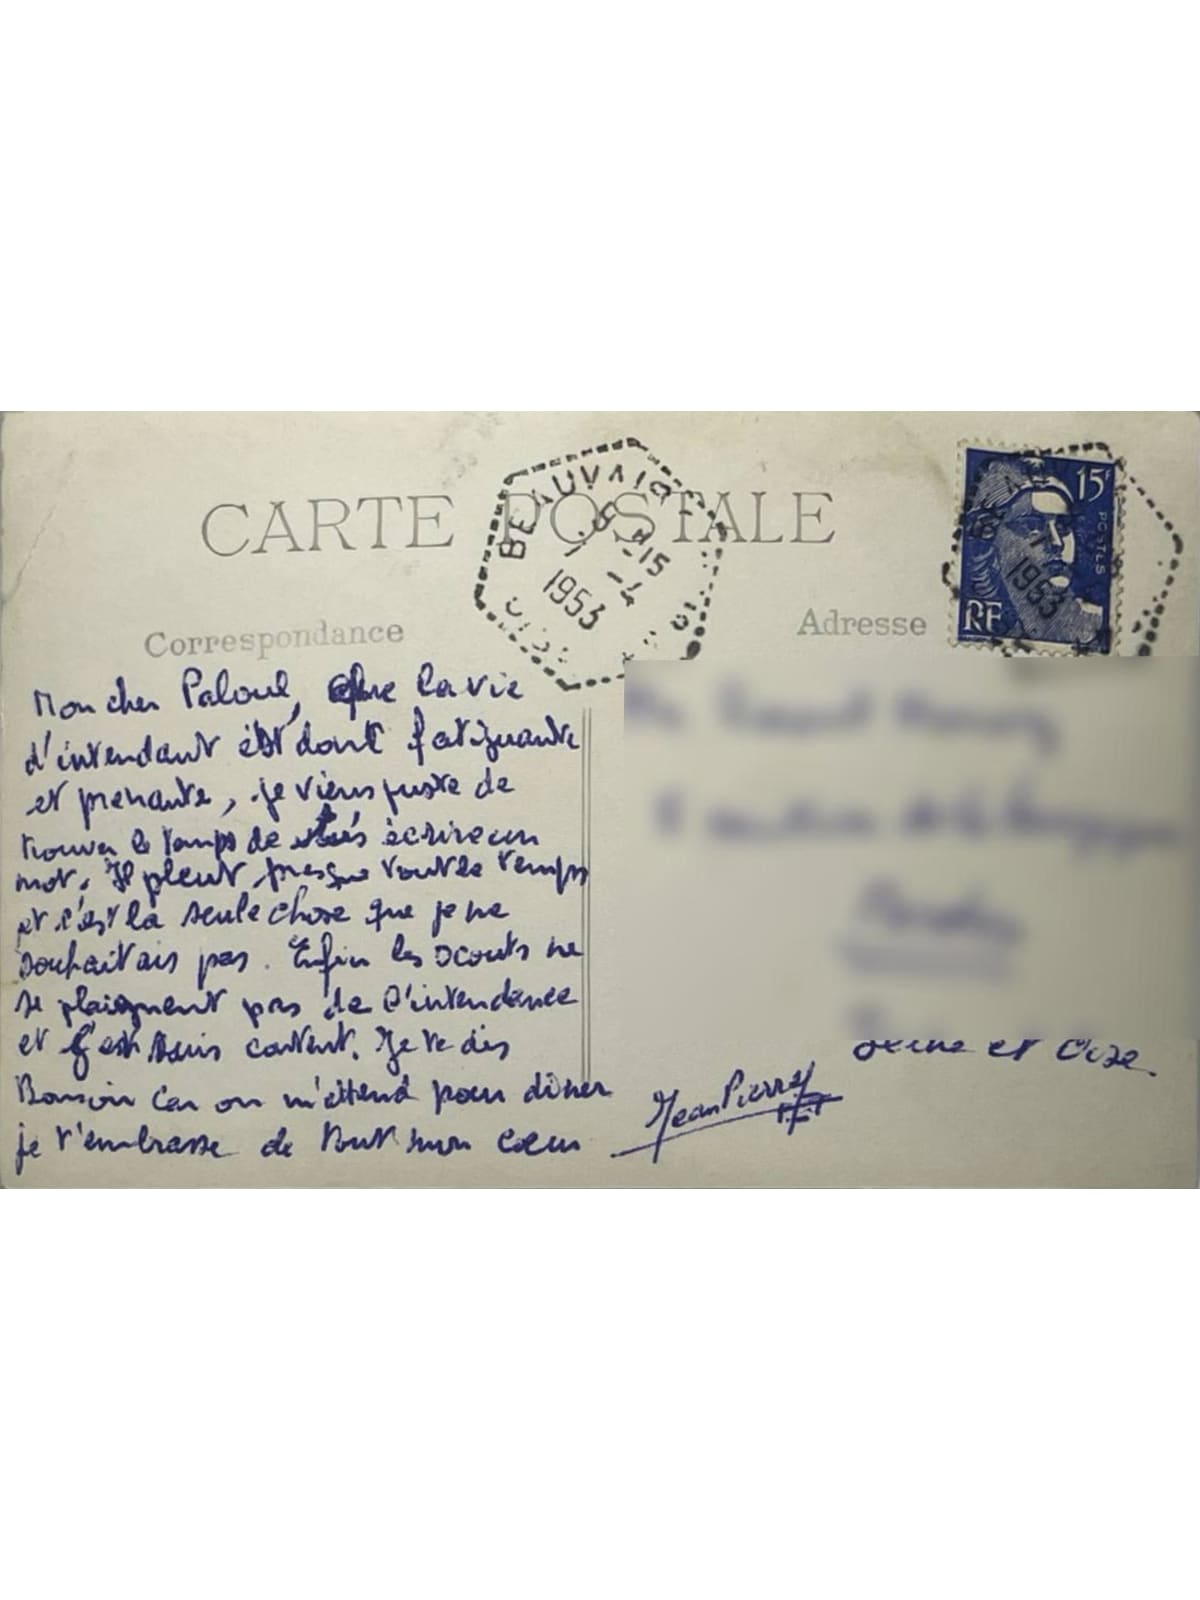 CARTE POSTALE
BEAUVAIS
1953
OISE
15F
POSTES
RF
1953
Correspondance
Adresse
Mon cher Paloul, que la vie
d'intendant est donc fatiguante
et prenante, je viens juste de
trouver le temps de écrire un
mot. Il pleut presque tout le temps
et c'est la seule chose que je ne
souhaitais pas. Enfin les scouts ne
se plaignent pas de l'intendance
et j'en suis content. Je te dis
Bonsoir car on m'attend pour dîner
je t'embrasse de tout mon cœur
Jean Pierre
Seine et Oise